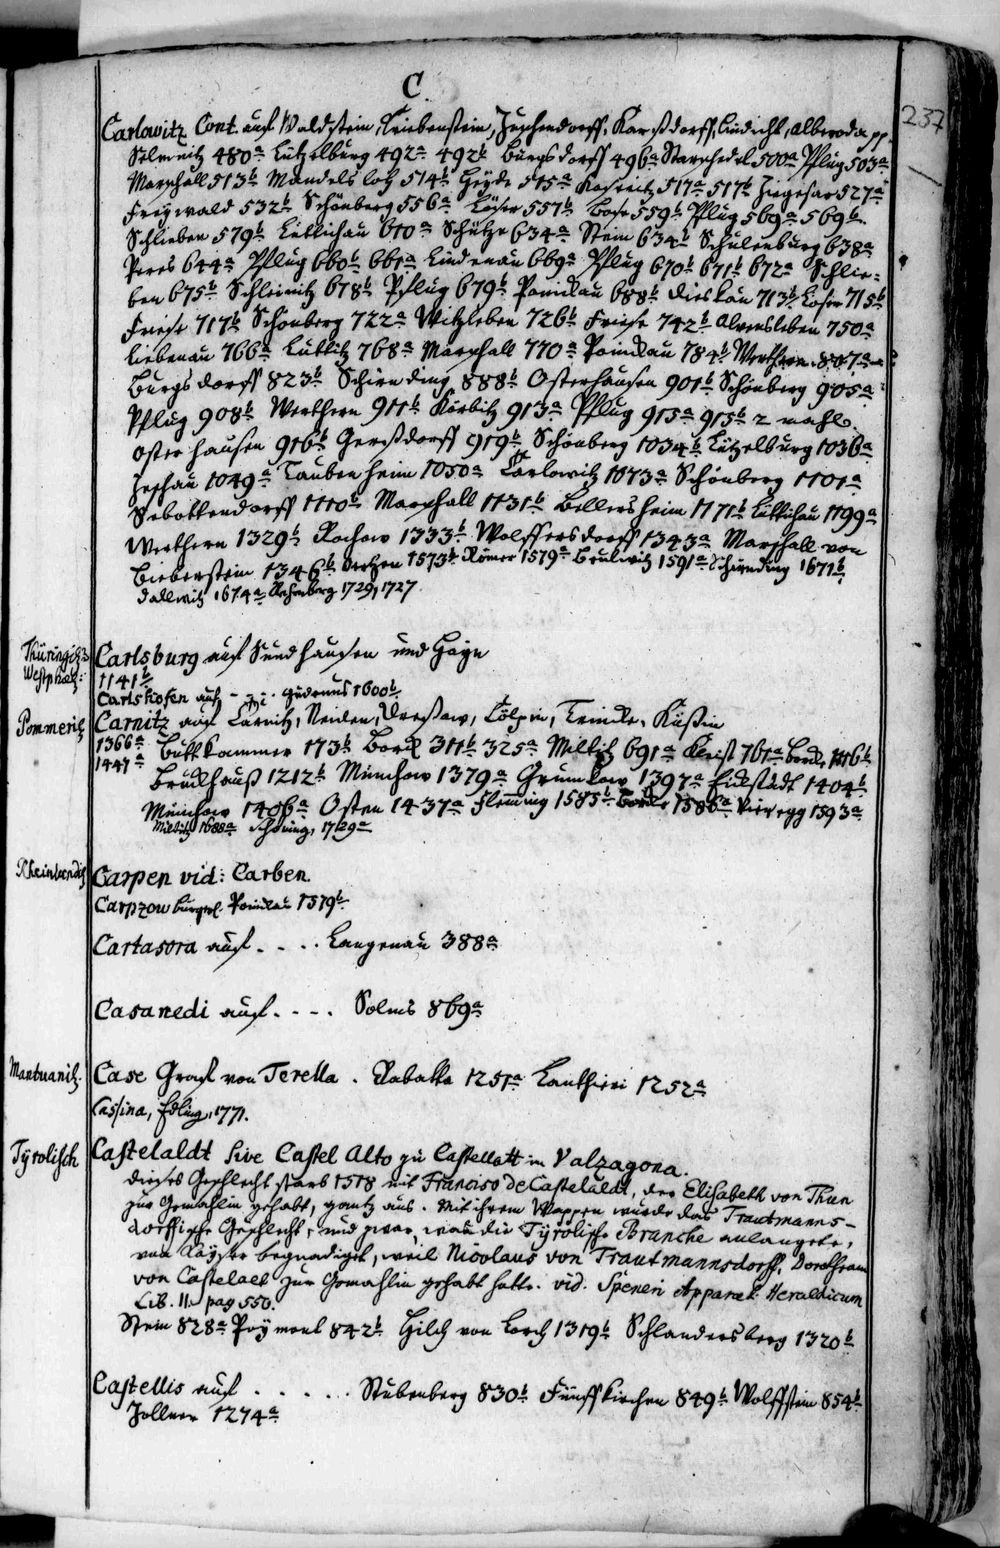 C.
237
Carlowitz Cont. auf Waldstein, Kriebenstein, Zuschendorff, Karßdorff, Liedricht, Alberoda pp
Selmnitz 480a Lützelburg 492a 492b Burgsdorff 496a Starschedel 500a Pflug 503a
Marschall 513b Mandelsloh 514b Heyde 515a Kospoth 517a 517b Ziegesar 527a
Freywald 532b Schönberg 556a Löser 557b Bose 559b Pflug 569a 569b
Schlieben 579b Lüttichau 610a Schütze 634a Stein 634b Schulenburg 638a
Peres 644a Pflug 660b 661a Lindenau 669a Pflug 670b 671b 672a Schlie=
ben 675b Schleinitz 678b Pflug 679b Ponickau 688b Dieskau 713b Löser 715b
Friese 717b Schönberg 722a Witzleben 726b Friese 742b Alvensleben 750a
Liebenau 766a Luttitz 768a Marschall 770a Ponickau 784b Werthern 807a
Burgsdorff 823b Schirnding 888b Osterhausen 901b Schönberg 905a
Pflug 908b Werthern 911b Körbitz 913a Pflug 915a 915b 2 mahl.
Osterhausen 916b Gerßdorff 919b Schönberg 1034b Lützelburg 1036a
Zeschau 1049a Taubenheim 1050a Carlowitz 1073a Schönberg 1101a
Sebottendorff 1110b Marschall 1131b Bellersheim 1171b Lüttichau 1199a
Werthern 1329b Rochow 1333b Wolffersdorff 1343a Marschall von
Bieberstein 1346b Oertzen 1573b Römer 1579a Beulwitz 1591a Schirnding 1671b
Dallwitz 1674a Rechenberg 1729, 1727.
Thüringisch
Carlsburg auf Sundhausen und Hayn
Westphael:
1141b
Carlshofen auf - - - Gudenus 1600b
Pommerisch
Carnitz auf Carnitz, Neides, Dresow, Cölpin, Triede, Küssin
1366a Puttkammer 173b Borck 311b 325a Miltitz 691a Kleist 761a Borck 1116b
1447a
Bruckhauß 1212b Münchow 1379a Grumkow 1397a Eickstädt 1404b
Münchow 1406a Osten 1437a Flemming 1585b Borck 1586a Vieregg 1593a
Miltitz 1688a Schöning, 1729a
Rheinländisch
Carpen vid: Carben
Carpzow bürgerl. Ponickau 1519b
Cartasora auf . - - . Langenau 388a
Casanedi auf . - - . Solms 869a
Mantuanisch.
Case Graf von Terella . Rabatta 1251a Lanthieri 1252a
Cassina, Edling, 1771.
Tyrolisch
Castelaldt sive Castel Alto zu Castellatt in Valzagona.
dieses Geschlecht starb 1518 mit Francisco de Castelaldt, der Elisabeth von Thun
zur Gemahlin gehabt, gantz aus. Mit ihrem Wappen wurde das Trautmanns-
dorffische Geschlecht, und zwar, was die Tyrolische Branche anlanget,
von Kayser begnadiget, weil Nicolaus von Trautmannsdorff, Dorotheam
von Castelaed zur Gemahlin gehabt hatte. vid. Speneri Apparat. Heraldicum
Lib. II. pag 550.
Stein 828a Poymont 842b Hilch von Lorch 1319b Schlandersberg 1320b
Castellis auf . . . . . Stubenberg 830b Fünffkirchen 849b Wolffstein 854b
Zollner 1274a